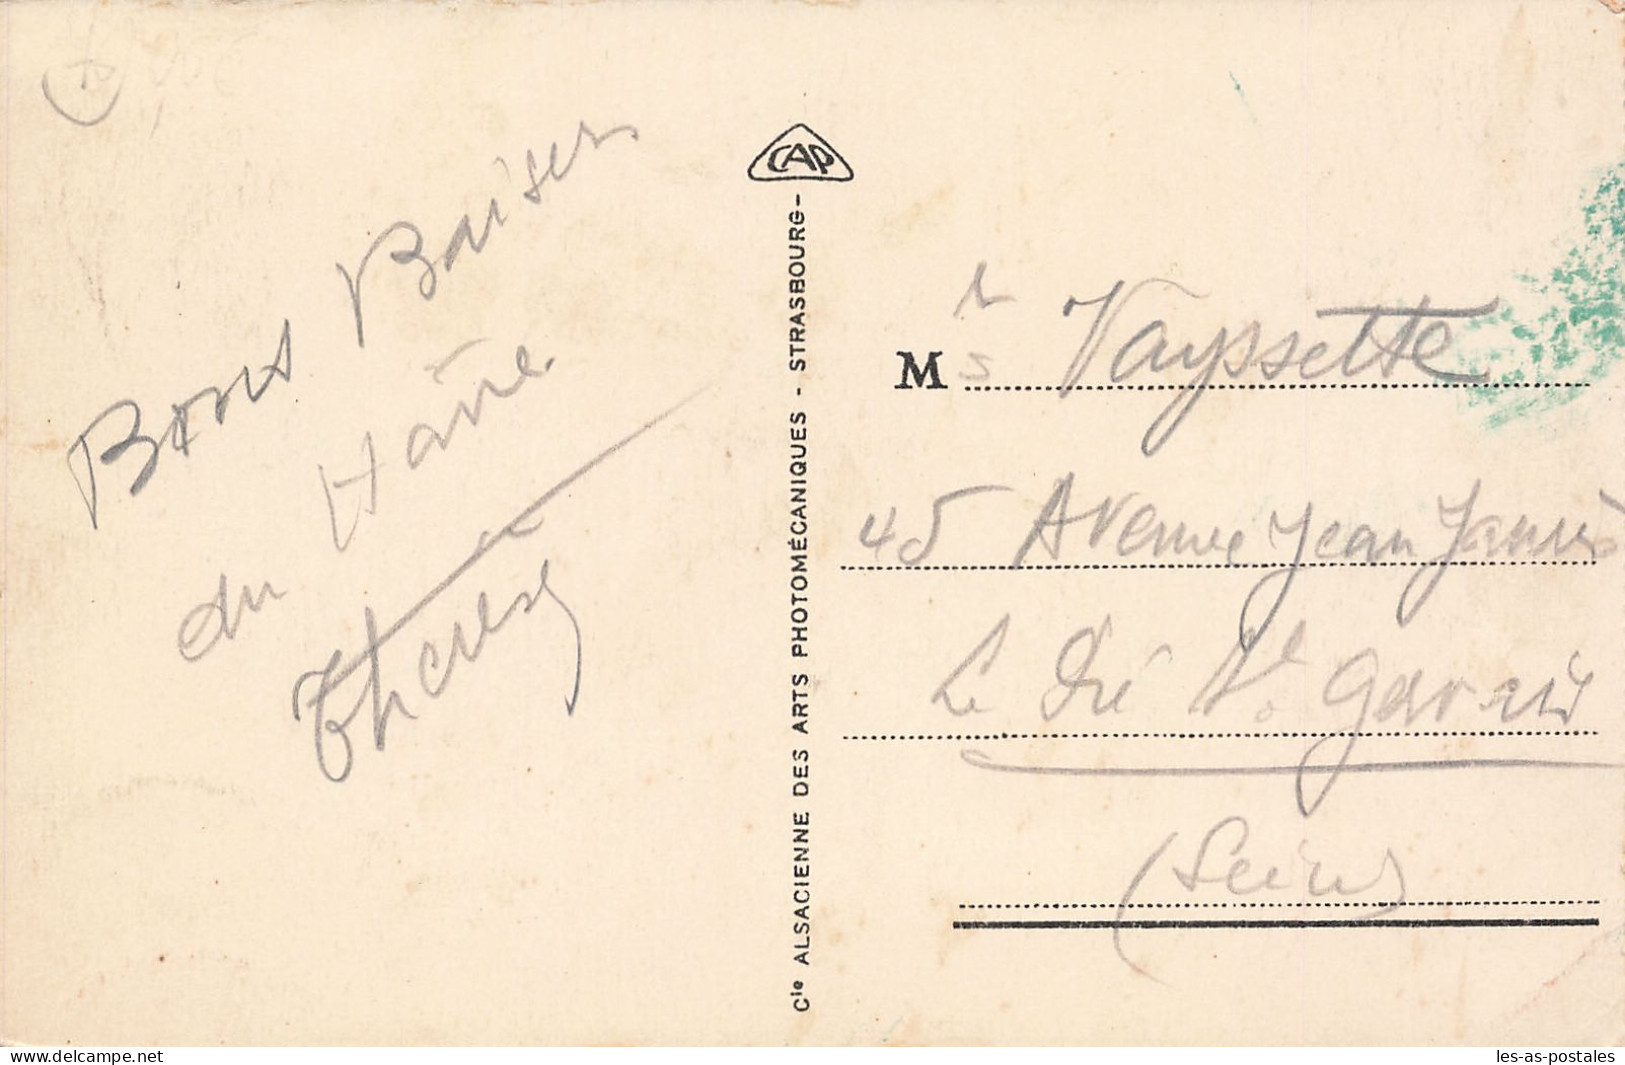 Bons Baisers
du Hâvre
Therese
CAP
Cie ALSACIENNE DES ARTS PHOTOMÉCANIQUES - STRASBOURG-
Mrs Vayssette
45 Avenue Jean Jaurès
Le Pré St. Gervais
(Seine)
delcampe.net
les-as-postales